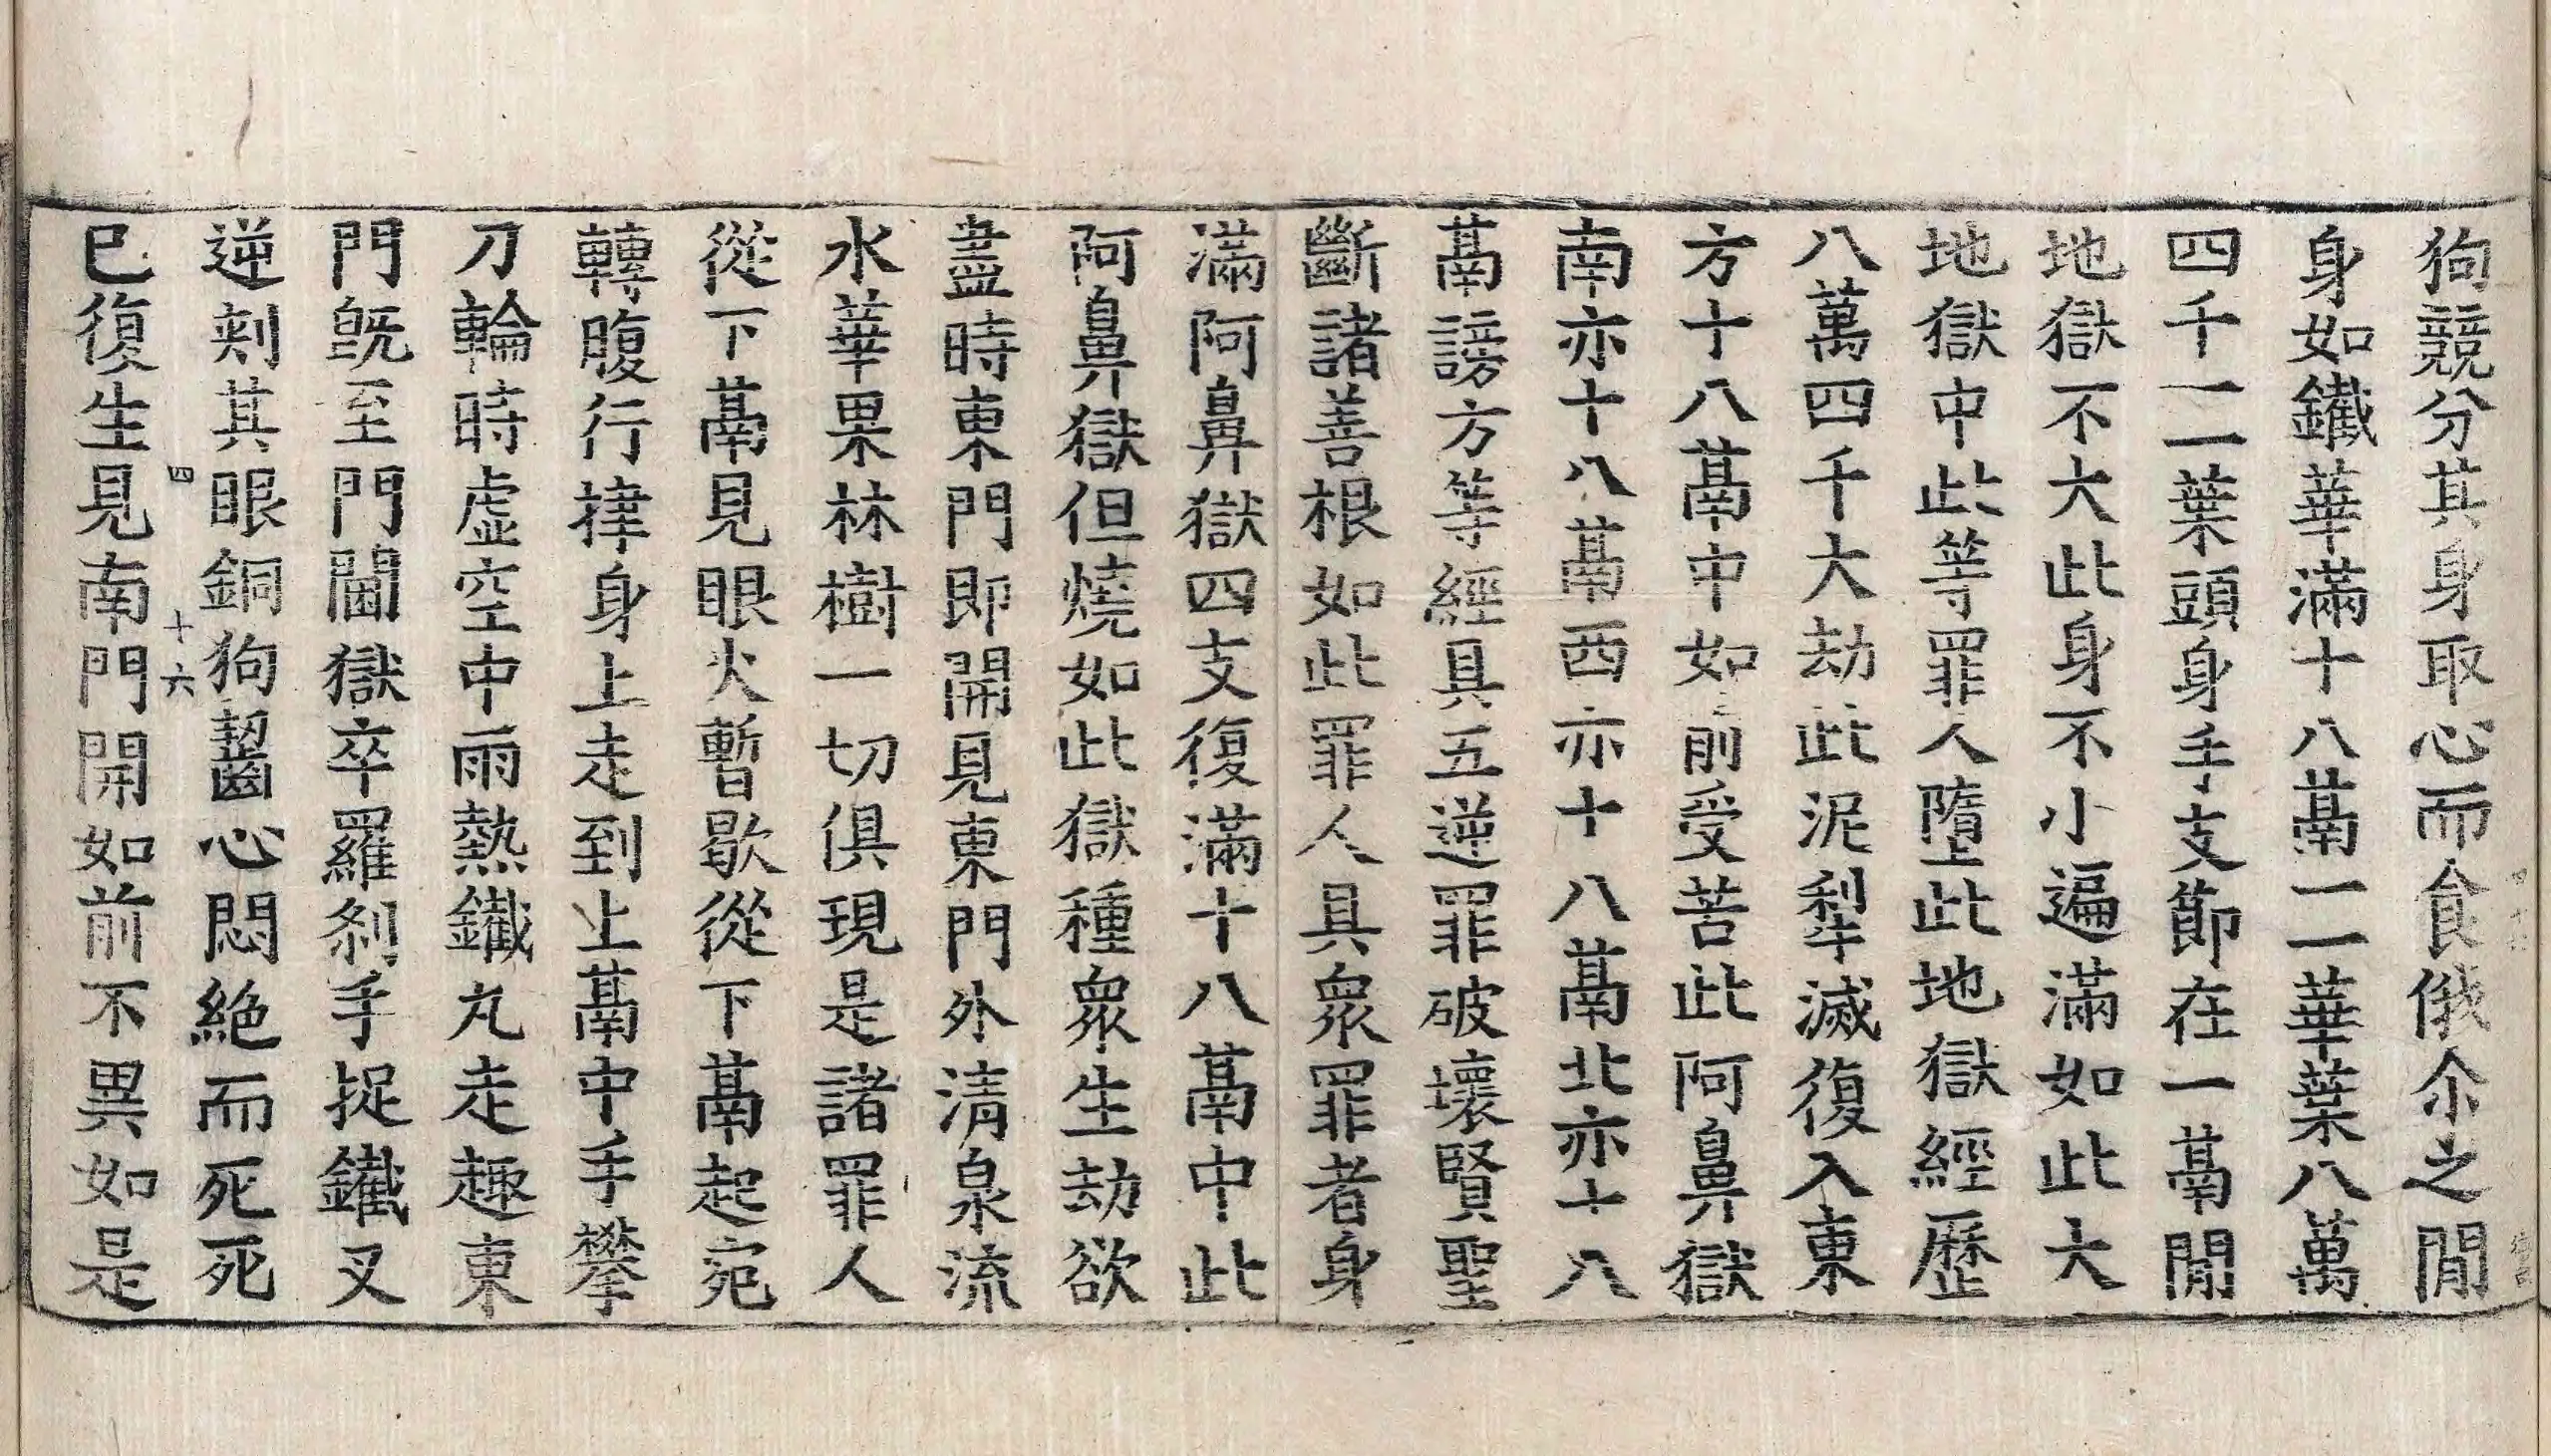 狗競分其身取心而食俄尒之閒
身如鐵華滿十八鬲一一華葉八萬
四千一一葉頭身手支節在一鬲閒
地獄不大此身不小遍滿如此大
地獄中此等罪人墮此地獄經歷
八萬四千大劫此泥犁滅復入東
方十八鬲中如前受苦此阿鼻獄
南亦十八鬲西亦十八鬲北亦十八
鬲謗方等經具五逆罪破壞賢聖
斷諸善根如此罪人具衆罪者身
滿阿鼻獄四支復滿十八鬲中此
阿鼻獄但燒如此獄種衆生劫欲
盡時東門即開見東門外清泉流
水華果林樹一切俱現是諸罪人
從下鬲見眼火暫歇從下鬲起宛
轉腹行捭身上走到上鬲中手攀
刀輪時虛空中雨熱鐵丸走趣東
門既至門閫獄卒羅剎手捉鐵叉
逆刺其眼銅狗齧心悶絕而死死
四 十六
已復生見南門開如前不異如是